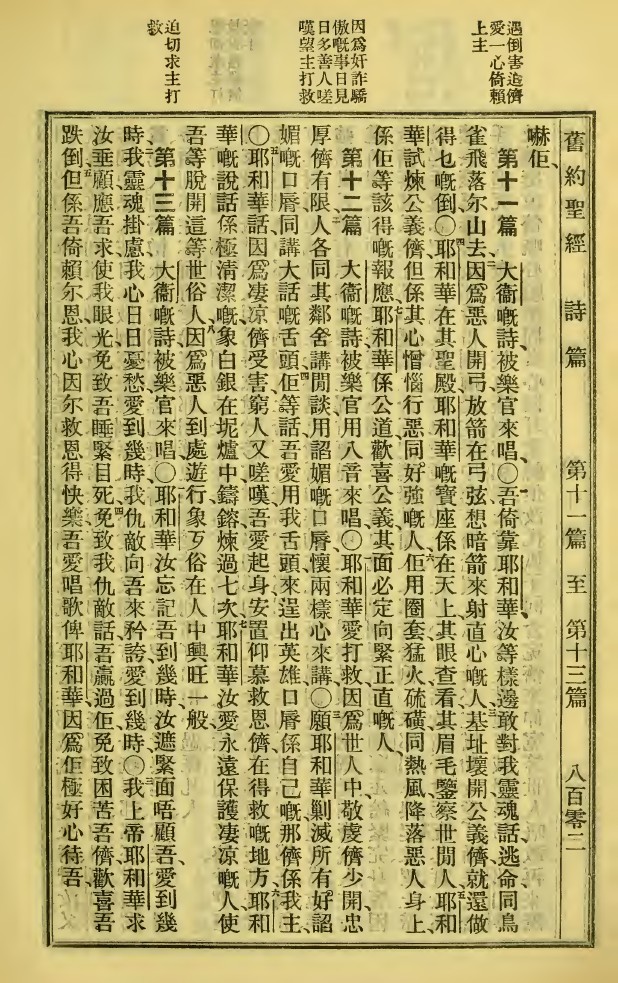 舊約聖經 詩篇 第十一篇 至 第十三篇 八百零二
遇倒害造儕
愛一心倚賴
上主
因爲奸詐驕
傲嘅事日見
日多善人嗟
嘆望主打救
迫切求主打
救
嚇佢、
第十一篇 大衞嘅詩被樂官來唱〇吾倚靠耶和華、汝等樣邊敢對我靈魂話、逃命同鳥
雀飛落尔山去、因爲惡人開弓、放箭在弓弦、想暗箭來射直心嘅人、基址壞開、公義儕就還做
得乜嘅倒、〇耶和華在其聖殿、耶和華嘅寶座係在天上、其眼查看、其眉毛鑒察世間人、耶和
華試煉公義儕、但係其心憎惱行惡同好強嘅人、佢用圈套猛火硫磺同熱風、降落惡人身上、
係佢等該得嘅報應、耶和華係公道、歡喜公義、其面必定向緊正直嘅人、
第十二篇 大衞嘅詩被樂官用八音來唱、〇耶和華愛打救、因爲世人中敬虔儕少開、忠
厚儕有限、人各同其鄰舍講閒談、用諂媚嘅口唇、懷兩樣心來講、〇願耶和華剿滅所有好諂
媚嘅口唇、同講大話嘅舌頭、佢等話、吾愛用我舌頭來逞出英雄、口唇係自己嘅、那儕係我主、
〇耶和華話、因爲凄凉儕受害、窮人又嗟嘆、吾愛起身、安置仰慕救恩儕在得救嘅地方、耶和
華嘅說話係極清潔嘅、象白銀在坭爐中鑄鎔煉過七次、耶和華汝愛永遠保護凄凉嘅人、使
吾等脫開這等世俗人、因爲惡人到處遊行、象歹俗在人中興旺一般、
第十三篇 大衞嘅詩被樂官來唱〇耶和華汝忘記吾到幾時、汝遮緊面唔顧吾愛到幾
時、我靈魂掛慮、我心日日憂愁愛到幾時、我仇敵向吾來矜誇愛到幾時、〇我上帝耶和華、求
汝垂顧應吾、求使我眼光、免致吾睡緊目死、免致我仇敵話、吾贏過佢、免致困苦吾儕歡喜吾
跌倒、但係吾倚賴尔恩、我心因尔救恩得快樂、吾愛唱歌俾耶和華、因爲佢極好心待吾、